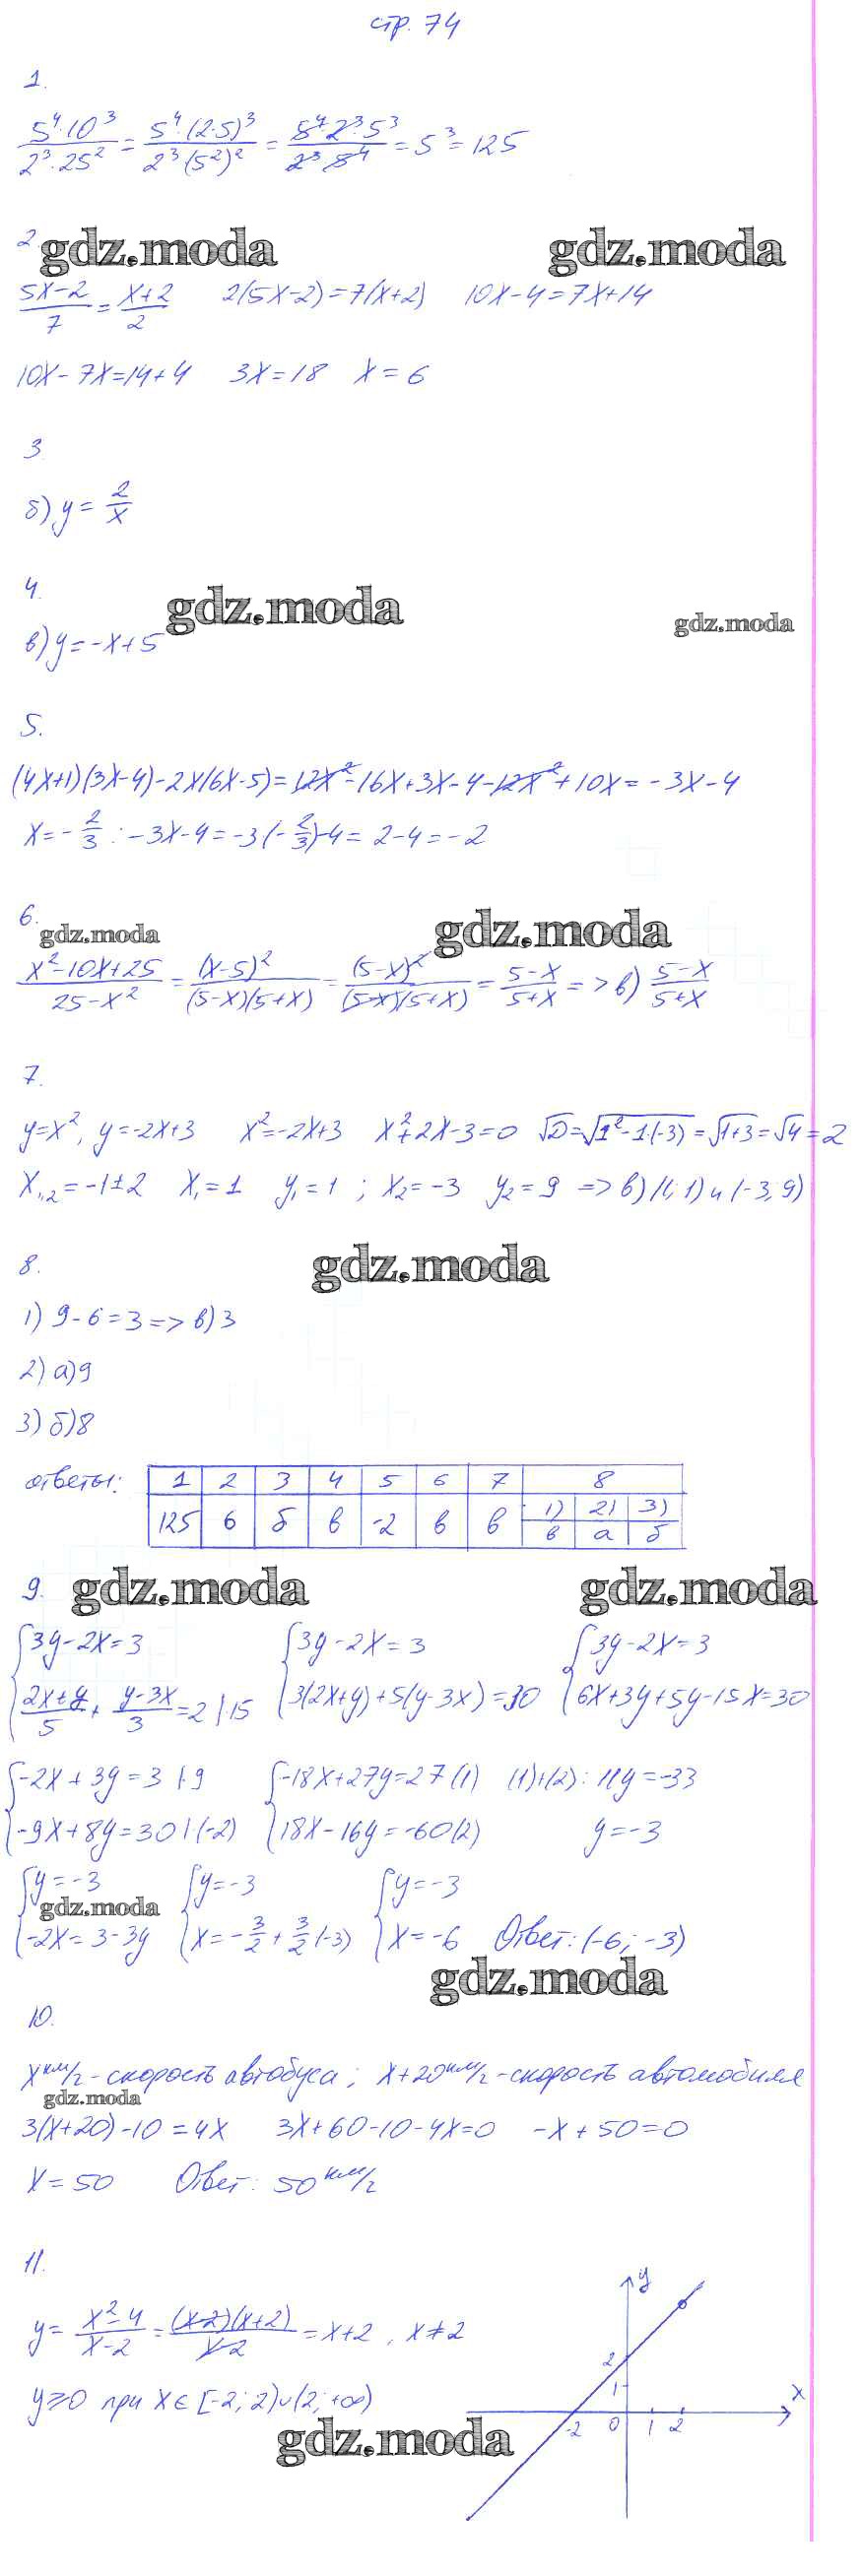 стр. 74
1.
5⁴·10³/2³·25² = 5⁴·(2·5)³/2³·(5²)² = 5⁴·2³·5³/2³·5⁴ = 5³ = 125
2.
gdz.moda gdz.moda
5x-2/7 = x+2/2 2(5x-2)=7(x+2) 10x-4=7x+14
10x-7x=14+4 3x=18 x=6
3
б) y = 2/x
4.
gdz.moda gdz.moda
в) y=-x+5
5.
(4x+1)(3x-4)-2x(6x-5)=12x²-16x+3x-4-12x²+10x=-3x-4
x=-2/3 : -3x-4=-3(-2/3)-4=2-4=-2
6.
gdz.moda gdz.moda
x²-10x+25/25-x² = (x-5)²/(5-x)(5+x) = (5-x)²/(5-x)(5+x) = 5-x/5+x => в) 5-x/5+x
7.
y=x², y=-2x+3 x²=-2x+3 x²+2x-3=0 √D=√1²-1·(-3)=√1+3=√4=2
x₁,₂=-1±2 x₁=1 y₁=1 ; x₂=-3 y₂=9 => в) (1; 1) и (-3; 9)
gdz.moda
8.
1) 9-6=3 => в) 3
2) а) 9
3) б) 8
ответы: 1 2 3 4 5 6 7 8
125 6 б в -2 в в 1) 2) 3)
в а б
9. gdz.moda gdz.moda
{3y-2x=3 {3y-2x=3 {3y-2x=3
2x+y/5 + y-3x/3 = 2 |·15 3(2x+y)+5(y-3x)=30 6x+3y+5y-15x=30
{-2x+3y=3 |·9 {-18x+27y=27 (1) (1)+(2): 11y=-33
-9x+8y=30 |·(-2) 18x-16y=-60 (2) y=-3
{y=-3 {y=-3 {y=-3
gdz.moda
-2x=3-3y x=-3/2+3/2·(-3) x=-6 Ответ: (-6; -3)
gdz.moda
10.
x км/ч - скорость автобуса; x+20 км/ч - скорость автомобиля
gdz.moda
3(x+20)-10=4x 3x+60-10-4x=0 -x+50=0
x=50 Ответ: 50 км/ч
11.
y = x²-4/x-2 = (x-2)(x+2)/x-2 = x+2, x≠2
y≥0 при x∈[-2; 2)∪(2; +∞)
gdz.moda
y
2
1
x
-2 0 1 2